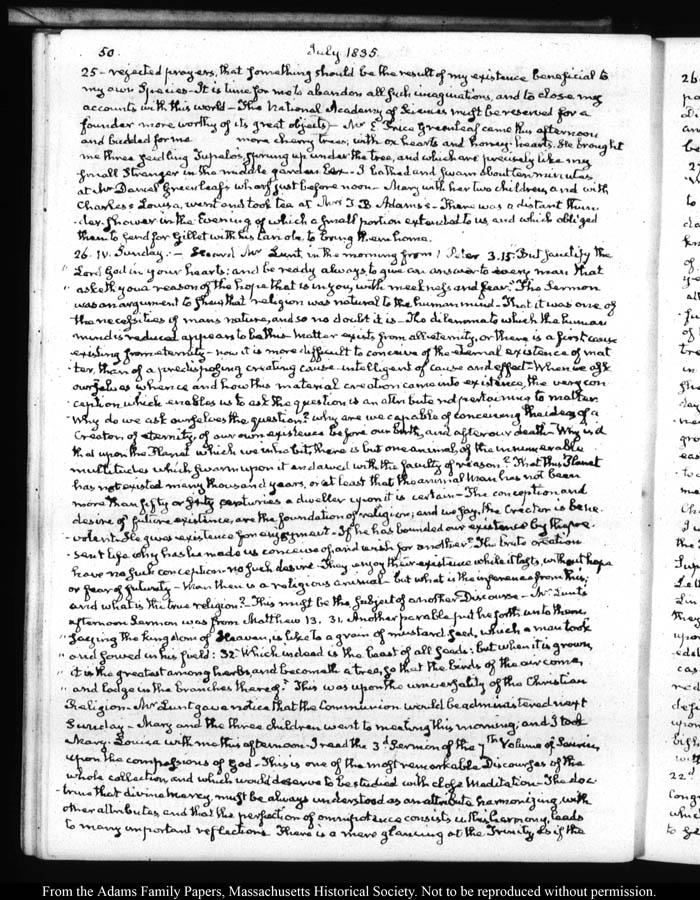 50.
July 1835.
25 - rejected prayers, that something should be the result of my existence beneficial to
my own Species - It is time for me to abandon all such imaginations, and to close my
accounts with this world - The National Academy of Sciences must be reserved for a
founder more worthy of its great objects - Mr E Price Greenleaf came this afternoon
and budded for me more cherry trees, with ox hearts and honey-hearts. He brought
me three seedling Tupelos, sprung up under the tree, and which are precisely like my
small Stranger in the middle garden - I bathed and swam about ten minutes
at Mr Daniel Greenleaf's wharf just before noon - Mary with her two children, and with
Charles & Louisa, went and took tea at Mrs T B Adams's - There was a distant thun-
der shower in the Evening of which a small portion extended to us and which obliged
them to send for Gillet with his Cariole to bring them home.
26. IV. Sunday. - Mr Lunt, in the morning from 1 Peter 3.15. "But sanctify the
" Lord God in your hearts; and be ready always to give an answer to every man that
" asketh you a reason of the hope that is in you, with meekness and fear." The Sermon
was an argument to shew that religion was natural to the human mind - That it was one of
the necessities of mans nature, and so no doubt it is - The dilemma to which the human
mind is reduced appears to be this - Matter exists from all eternity, or there is a first cause
existing from eternity - now it is more difficult to conceive of the eternal existence of mat-
ter, than of a predisposing creating cause - intelligent of cause and effect - When we ask
ourselves whence and how this material creation came into existence, the very con-
ception which enables us to ask the question is an attribute not pertaining to matter.
Why do we ask ourselves the question? why are we capable of conceiving the idea of a
Creator; of eternity, of our own existence before our birth, and after our death - Why is it
that upon the Planet which we inhabit, there is but one animal, of the innumerable
multitudes which swarm upon it endowed with the faculty of reason? That this Planet
has not existed many thousand years, or at least that the animal Man has not been
more than fifty or sixty centuries a dweller upon it is certain - The conception and
desire of future existence, are the foundation of religion; and we say, the Creator is bene-
volent. He gives existence for enjoyment - If he has bounded our existence by the pre-
sent life why has he made us conceive of, and wish for another? The brute creation
have no such conception - no such desire - They enjoy their existence while it lasts, without hope
or fear of futurity - Man then is a religious animal - but what is the inference from this;
and what is the true religion? - This must be the subject of another Discourse - Mr Lunt's
afternoon Sermon was from Matthew 13. 31. Another parable put he forth unto them,
" saying the kingdom of Heaven, is like to a grain of mustard seed, which a man took
" and sowed in his field: 32 Which indeed is the least of all seeds: but when it is grown,
" it is the greatest among herbs, and becometh a tree, so that the birds of the air come,
" and lodge in the branches thereof." This was upon the universality of the Christian
Religion - Mr Lunt gave notice that the Communion would be administered next
Sunday - Mary and the three children went to meeting this morning; and I took
Mary-Louisa with me this afternoon - I read the 3d Sermon of the 7th Volume of Saurin,
upon the compassions of God - This is one of the most remarkable Discourses of the
whole collection, and which would deserve to be studied with close Meditation - The doc-
trine that divine mercy, must be always understood as an attribute harmonizing with
other attributes and that the perfection of omnipotence consists in this harmony, leads
to many important reflections There is a mere glancing at the Trinity, as if the
From the Adams Family Papers, Massachusetts Historical Society. Not to be reproduced without permission.